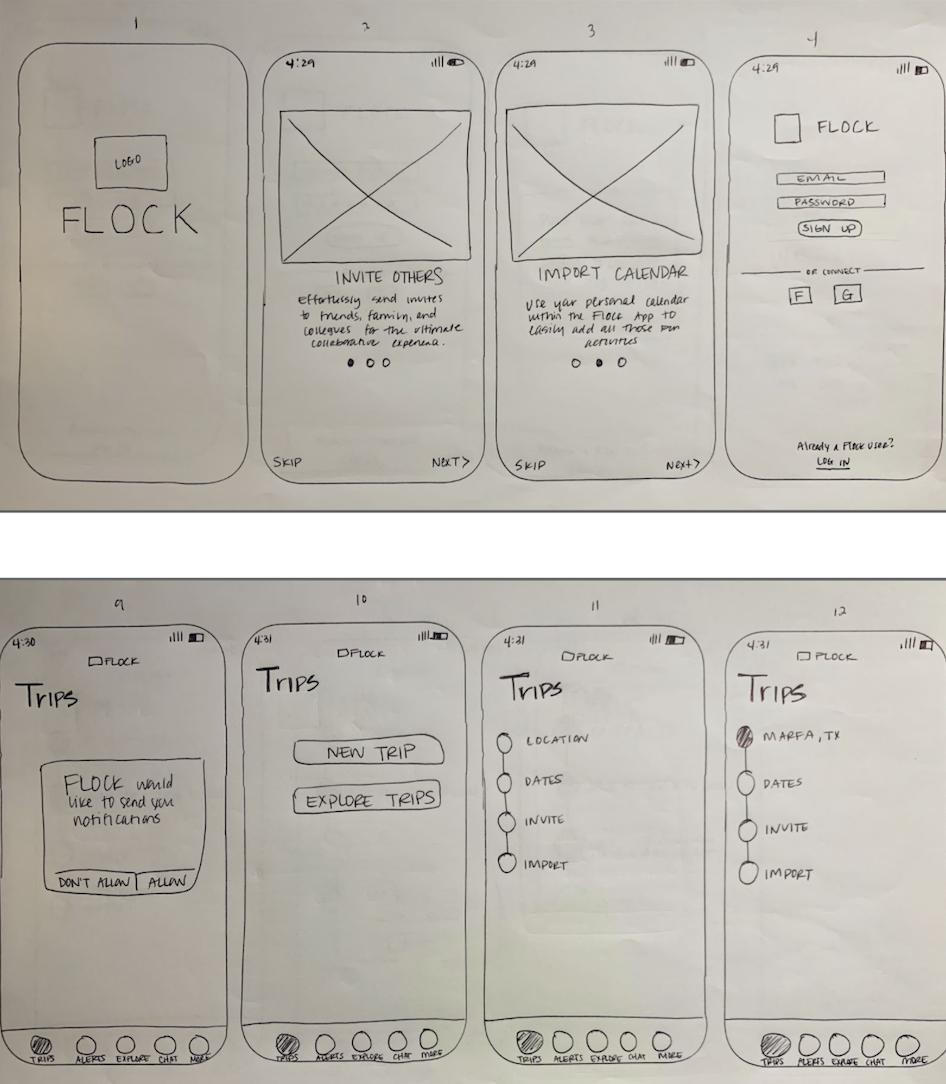 1
LOGO
FLOCK
2
4:29
INVITE OTHERS
Effortlessly send invites
to friends, family, and
collegues for the ultimate
collaborative experience.
SKIP
NEXT >
3
4:29
IMPORT CALENDAR
Use your personal calendar
within the Flock App to
easily add all those fun
activities
SKIP
NEXT >
4
4:29
FLOCK
EMAIL
PASSWORD
SIGN UP
OR CONNECT
F G
Already a Flock user?
LOG IN
9
4:30
FLOCK
TRIPS
FLOCK would
like to send you
notifications
DON'T ALLOW ALLOW
TRIPS ALERTS EXPLORE CHAT MORE
10
4:31
FLOCK
TRIPS
NEW TRIP
EXPLORE TRIPS
TRIPS ALERTS EXPLORE CHAT MORE
11
4:31
FLOCK
TRIPS
LOCATION
DATES
INVITE
IMPORT
TRIPS ALERTS EXPLORE CHAT MORE
12
4:31
FLOCK
TRIPS
MARFA, TX
DATES
INVITE
IMPORT
TRIPS ALERTS EXPLORE CHAT MORE